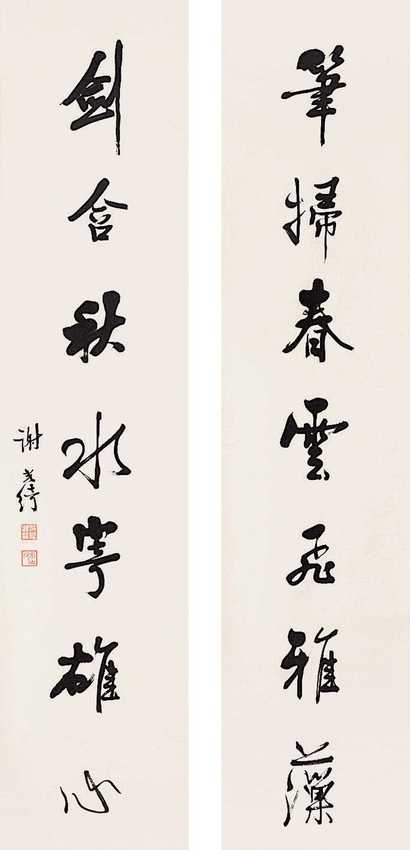 筆掃春雲飛雅藻
劍含秋水寄雄心
謝